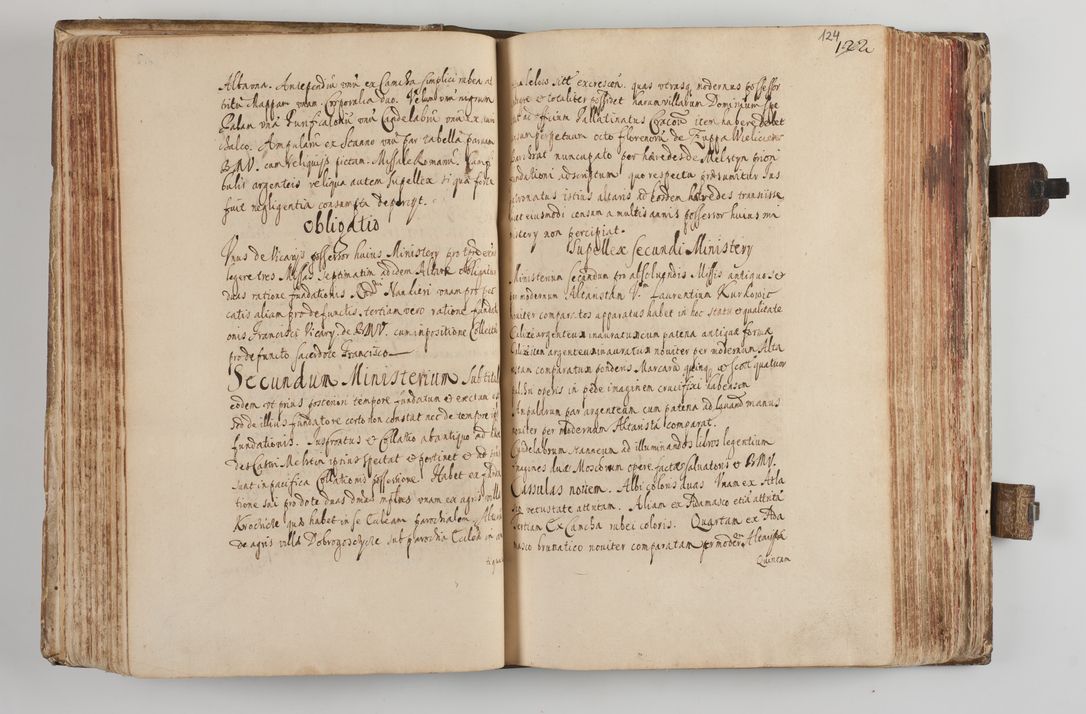 Altarina. Antependiũ unũ ex Camcha simplici rubea at
trita Mapparũ unam Corporalia duo. Velum unũ nigrum
Palam unã Pusificalorũ unũ Candelabrũ unũ ex auri
chalco. Ampularũ ex Stanno unũ par tabellã parvam
BMV. cum reliquijs pictam. Missale Romanũ. Cimp
balis argenteis reliqua autem supellex si qua forte
fuit negligentia consumpta deperijt.
Obligatio
Unus de Vicarijs possessor huius Ministery pro tenetur
legere tres Missas septimatim ad idem Altare obligatur
duas ratione fundationis unam pro pec
catis aliam pro defunctis. tertiam vero ratione fundati
onis Francisci Vicary de BMV. cum inpositione Collectæ
pro defuncto sacerdote Francisco
Secundum Ministerium sub titul
eodem ut prius posteriori tempore fundatum et erectum est
sed de illius fundatore certo non constat nec de tempore
fundationis. Jus patronatus et Collatio ab antiquo ad
des Castri Melstein prius spectat et pertinet et
sunt in pacifica Collationis possessione. Habet ex funda
tione sui pro dote duas decimas unam ex agris villæ
Krochicze quæ habet in se Ecclesiam parochialem Alteram
de agris villæ Dobrogoszczycze sub parochia
124
122
excrescen. quas utrasq modernus possessor
et totaliter possidet harum villarum Dominium spe
ctat ad officium Pallatinatus Cracoviẽ item habere debet
censum perpetuum octo florenorũ de Zuppa Wieliciensi
nuncupato per hæredes de Melstyn priori
fundationi adscriptum quo respectu præsumitur Jus
patronatus istius altaris ad eosdem hæredes transisse
ejusmodi censum a multis annis possessor huius mi
nistery non percipiat.
Supellex secundi Ministery
Ministerium secundum pro absoluendis Missis antiquo se
per modernum Altaristam Vm Laurentium Kurkowic
noviter comparatos apparatus habet in hoc statu et qualitate
Calicẽ argenteum inauratum cum patena antiqua forma
Calicẽ item argenteum inauratum noviter per modernum Alta
ristam comparatum ponderis Marcarũ quinq et scott quatuor
operis in pede imaginem crucifixi habensem
Ampullarum par argenteum cum patena ad lauand manus
noviter per modernum Altaristã comparat.
Candelabrum stanneum ad illuminandos libros legentium
Imagines duæ Moscorum opere factæ Saluatoris et BMV.
Cassulas novem. Albi coloris duas Unam ex Atla
vetustate attritam. Aliam ex Adamasco etiã attritã
Tertiam Ex Camcha rubei coloris. Quartam ex Ada
masco brunatico noviter comparatam per moder Altarista
Quintam